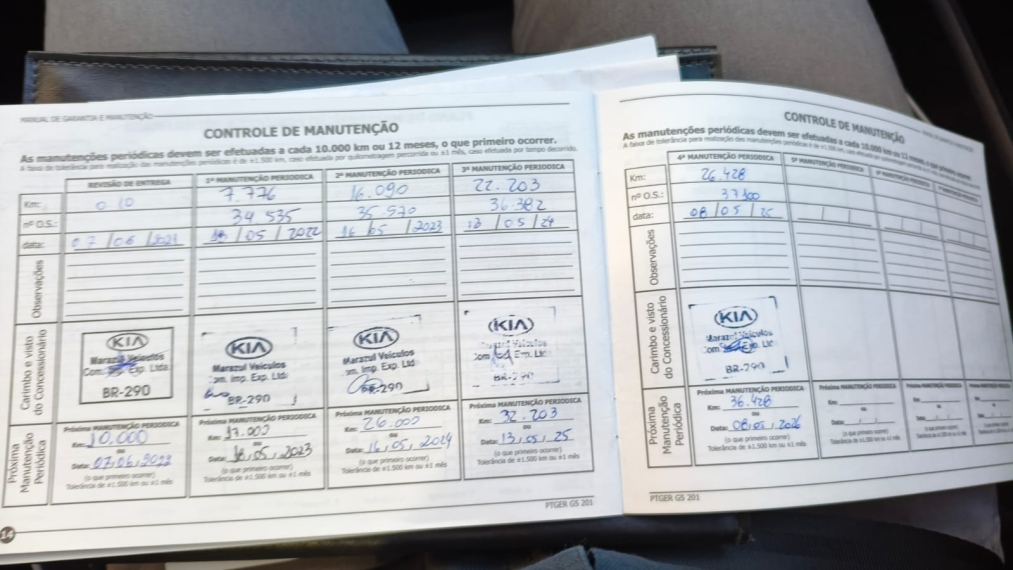 MANUAL DE GARANTIA E MANUTENÇÃO
CONTROLE DE MANUTENÇÃO
As manutenções periódicas devem ser efetuadas a cada 10.000 km ou 12 meses, o que primeiro ocorrer.
A faixa de tolerância para realização das manutenções periódicas é de ±1.500 km, caso efetuada por quilometragem percorrida ou ±1 mês, caso efetuada por tempo decorrido.
REVISÃO DE ENTREGA 1ª MANUTENÇÃO PERIÓDICA 2ª MANUTENÇÃO PERIÓDICA 3ª MANUTENÇÃO PERIÓDICA
Km: 010 7.776 16.090 22.203
nº O.S.: 34.535 35.570 36.382
data: 07/06/2021 /05/2022 16/05/2023 13/05/24
Observações
Carimbo e visto do Concessionário
KIA
Marazul Veiculos
Com. Exp. Ltda.
BR-290
KIA
Marazul Veiculos
Com. Imp. Exp. Ltd
BR-290
KIA
Marazul Veiculos
Com. Imp. Exp. Ltd
BR-290
KIA
Veiculos
Com Exp. Ltd
BR-290
Próxima Manutenção Periódica
Próxima MANUTENÇÃO PERIODICA
Km: 10.000
ou
Data: 07/06/2022
(o que primeiro ocorrer)
Tolerância de ±1.500 km ou ±1 mês
Próxima MANUTENÇÃO PERIODICA
Km: 17.000
ou
Data: /05/2023
(o que primeiro ocorrer)
Tolerância de ±1.500 km ou ±1 mês
Próxima MANUTENÇÃO PERIODICA
Km: 26.000
ou
Data: 16/05/2024
(o que primeiro ocorrer)
Tolerância de ±1.500 km ou ±1 mês
Próxima MANUTENÇÃO PERIODICA
Km: 32.203
ou
Data: 13/05/25
(o que primeiro ocorrer)
Tolerância de ±1.500 km ou ±1 mês
14
PTGER GS 201
CONTROLE DE MANUTENÇÃO
As manutenções periódicas devem ser efetuadas a cada 10.000 km ou 12 meses, o que primeiro ocorrer.
4ª MANUTENÇÃO PERIÓDICA 5ª MANUTENÇÃO PERIÓDICA
Km: 26.428
nº O.S.: 37100
data: 08/05/25
Observações
Carimbo e visto do Concessionário
KIA
Marazul Veiculos
Com Exp. Ltd
BR-290
Próxima Manutenção Periódica
Próxima MANUTENÇÃO PERIODICA
Km: 36.428
ou
Data: 08/05/2026
(o que primeiro ocorrer)
Tolerância de ±1.500 km ou ±1 mês
Próxima MANUTENÇÃO PERIODICA
Km:
ou
Data:
(o que primeiro ocorrer)
Tolerância de ±1.500 km ou ±1 mês
PTGER GS 201